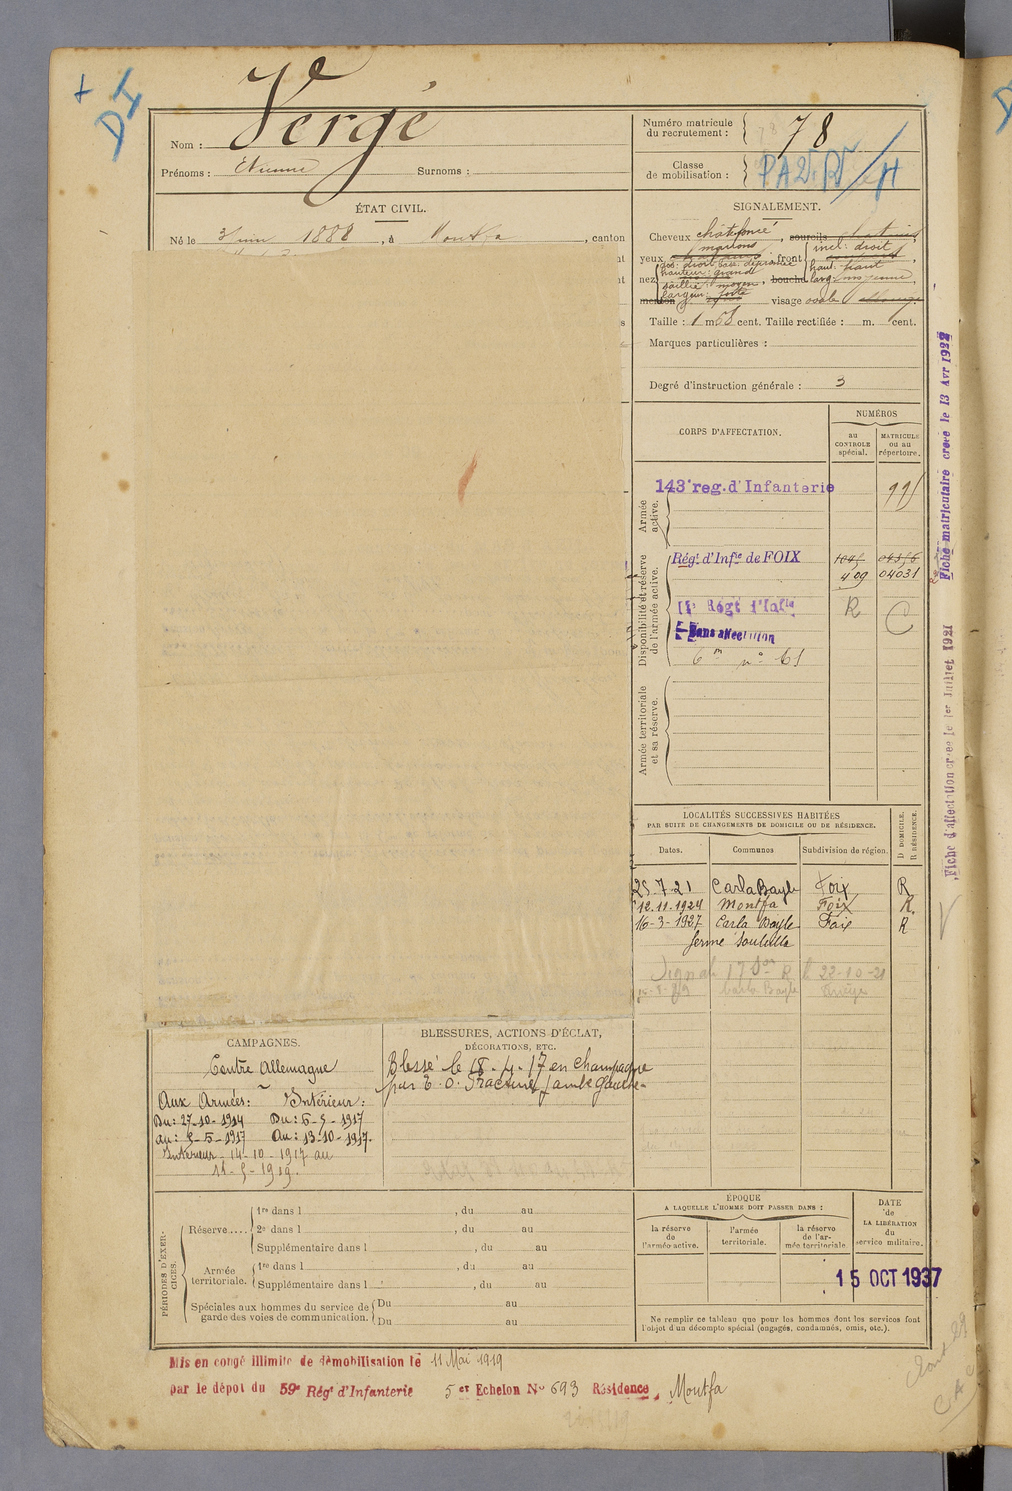 DI
Vergé
Nom :
Prénoms : Etienne Surnoms :
Numéro matricule
du recrutement : 78
Classe
de mobilisation :
ÉTAT CIVIL.
Né le 3 juin 1888, à Montfa, canton
SIGNALEMENT.
Cheveux châtf foncé, sourcils
yeux marrons, front incl: droit
nez dos: droit base: déprimée
hauteur: grande haut: haut
saillie: moyen, bouche larg: moyenne,
largeur: forte
menton visage ovale allongé
Taille : 1 m 58 cent. Taille rectifiée : m. cent.
Marques particulières :
Degré d'instruction générale : 3
CORPS D'AFFECTATION.
NUMÉROS
au
CONTROLE
spécial.
MATRICULE
ou au
répertoire.
Armée
active.
143e reg. d'Infanterie
Disponibilité et réserve
de l'armée active.
Régt d'Infie de FOIX
409 04031
Régt d'Infie R C
Sans affectation
6 m n° 61
Armée territoriale
et sa réserve.
Fiche matriculaire créée le 13 Avr 1922
Fiche d'affectation créée le 1er Juillet 1921
LOCALITÉS SUCCESSIVES HABITÉES
PAR SUITE DE CHANGEMENTS DE DOMICILE OU DE RÉSIDENCE.
Dates. Communes Subdivision de région.
D DOMICILE.
R RÉSIDENCE.
25.7.21 Carla Bayle Foix R
12.11.1924 Montfa Foix R
16-3-1927 Carla Bayle Foix R
ferme
22-10-21
Carla Bayle
CAMPAGNES.
Contre Allemagne
Aux Armées: Intérieur:
Du: 27-10-1914 Du: 6-5-1917
au: 5-5-1917 Au: 13-10-1917.
Intérieur 14-10-1917 au
11-5-1919.
BLESSURES, ACTIONS D'ÉCLAT,
DÉCORATIONS, ETC.
Blessé le 18-4-17 en Champagne
par E. O. Fracture jambe gauche
PÉRIODES D'EXER-
CICES.
Réserve....
1re dans l , du au
2e dans l , du au
Supplémentaire dans l , du au
Armée
territoriale.
1re dans l , du au
Supplémentaire dans l , du au
Spéciales aux hommes du service de
garde des voies de communication.
Du au
Du au
ÉPOQUE
A LAQUELLE L'HOMME DOIT PASSER DANS :
la réserve
de
l'armée active.
l'armée
territoriale.
la réserve
de l'ar-
mée territoriale.
DATE
de
LA LIBÉRATION
du
service militaire.
15 OCT 1937
Ne remplir ce tableau que pour les hommes dont les services font
l'objet d'un décompte spécial (engagés, condamnés, omis, etc.).
Mis en congé illimité de démobilisation le 11 Mai 1919
par le dépôt du 59e Régt d'Infanterie 5er Echelon No 693 Résidence, Montfa